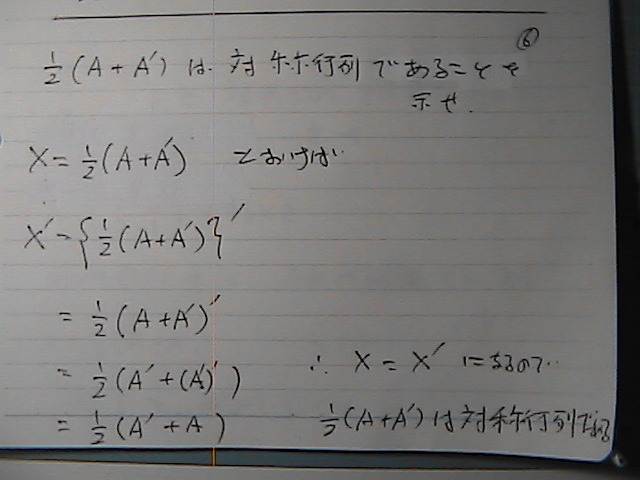 ⑥
½(A+A′)は 対称行列であることを
示せ.
X=½(A+A′) とおけば
X′={½(A+A′)}′
=½(A+A′)′
=½(A′+(A′)′) ∴ X=X′になるので
=½(A′+A) ½(A+A′)は対称行列である